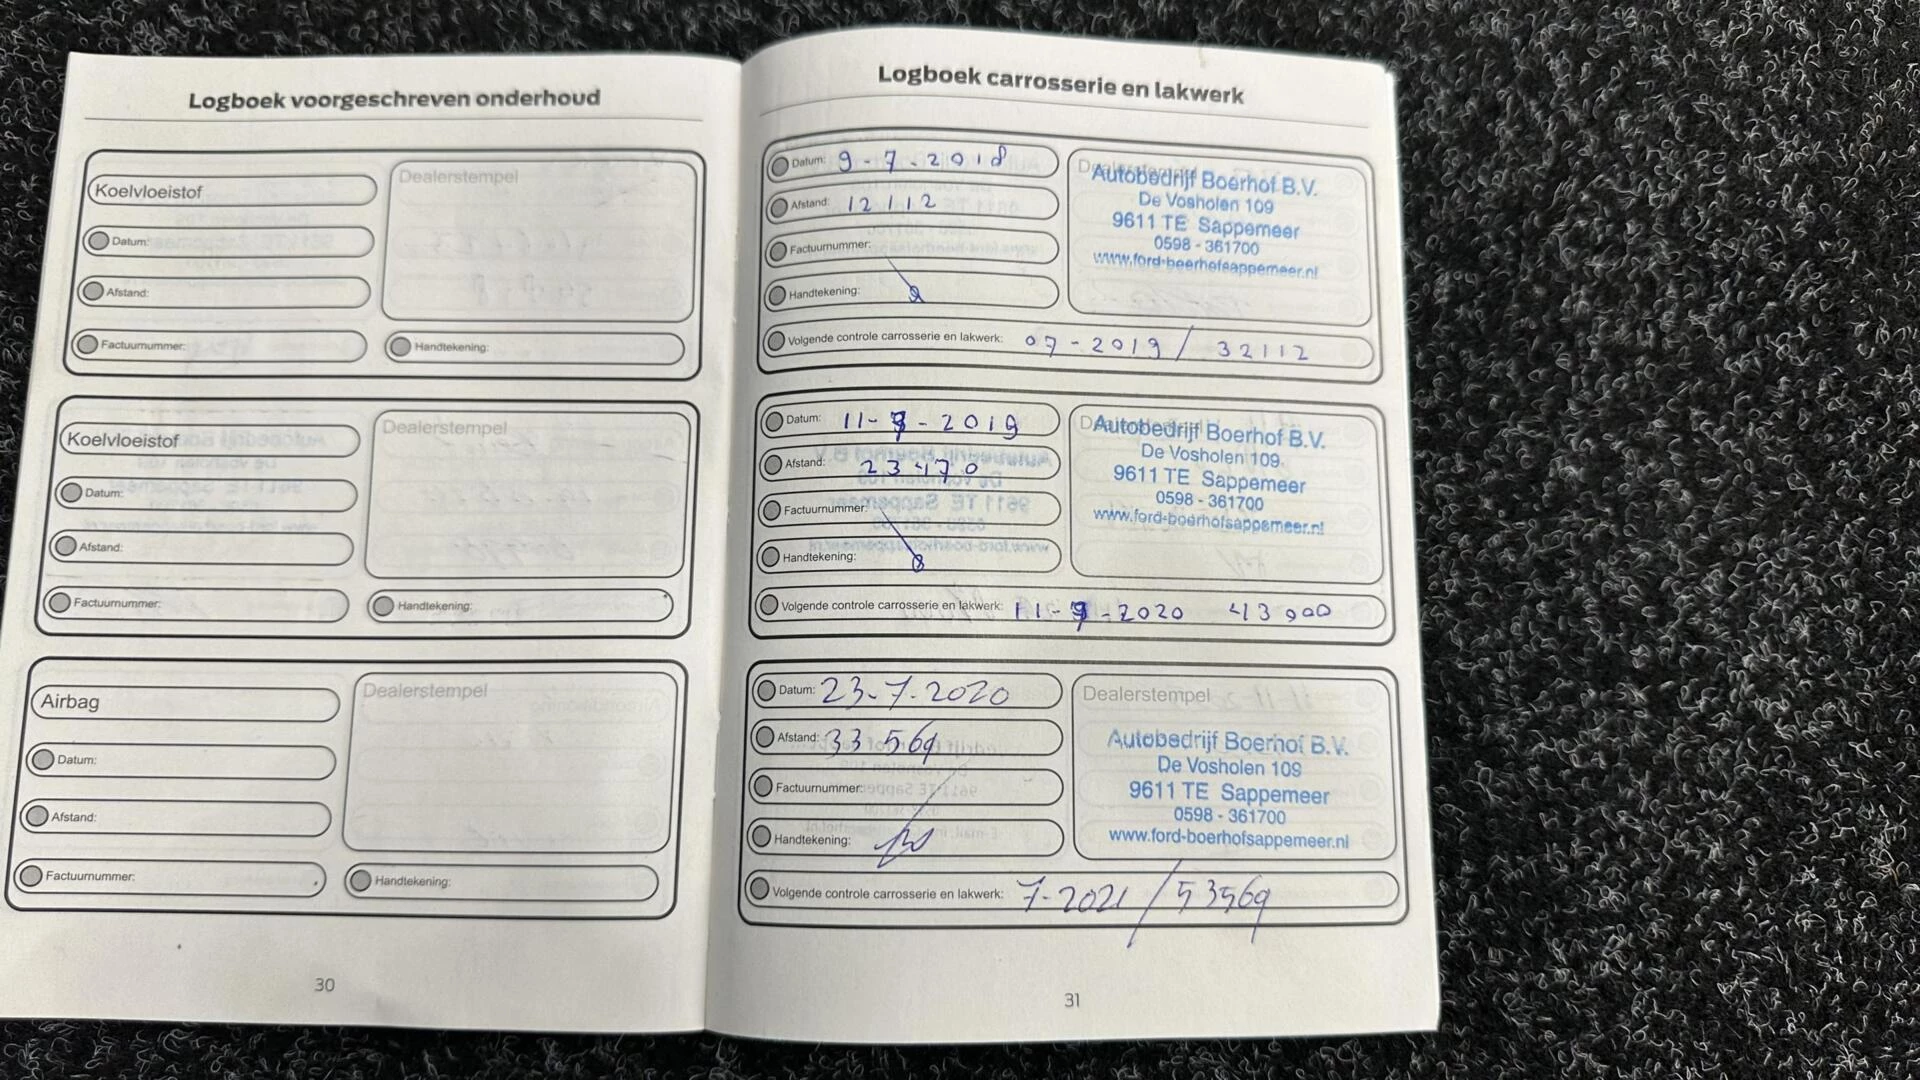 Logboek voorgeschreven onderhoud
Koelvloeistof
Dealerstempel
Datum:
Afstand:
Factuurnummer:
Handtekening:
Koelvloeistof
Dealerstempel
Datum:
Afstand:
Factuurnummer:
Handtekening:
Airbag
Dealerstempel
Datum:
Afstand:
Factuurnummer:
Handtekening:
30
Logboek carrosserie en lakwerk
Datum: 9-7-2018
Afstand: 12112
Factuurnummer:
Handtekening:
Autobedrijf Boerhof B.V.
De Vosholen 109
9611 TE Sappemeer
0598 - 361700
www.ford-boerhofsappemeer.nl
Volgende controle carrosserie en lakwerk: 07-2019 / 32112
Datum: 11- -2019
Afstand: 23470
Factuurnummer:
Handtekening:
Autobedrijf Boerhof B.V.
De Vosholen 109
9611 TE Sappemeer
0598 - 361700
www.ford-boerhofsappemeer.nl
Volgende controle carrosserie en lakwerk: 11- -2020 43000
Datum: 23-7-2020
Afstand: 33569
Factuurnummer:
Handtekening:
Dealerstempel
Autobedrijf Boerhof B.V.
De Vosholen 109
9611 TE Sappemeer
0598 - 361700
www.ford-boerhofsappemeer.nl
Volgende controle carrosserie en lakwerk: 7-2021 / 53569
31